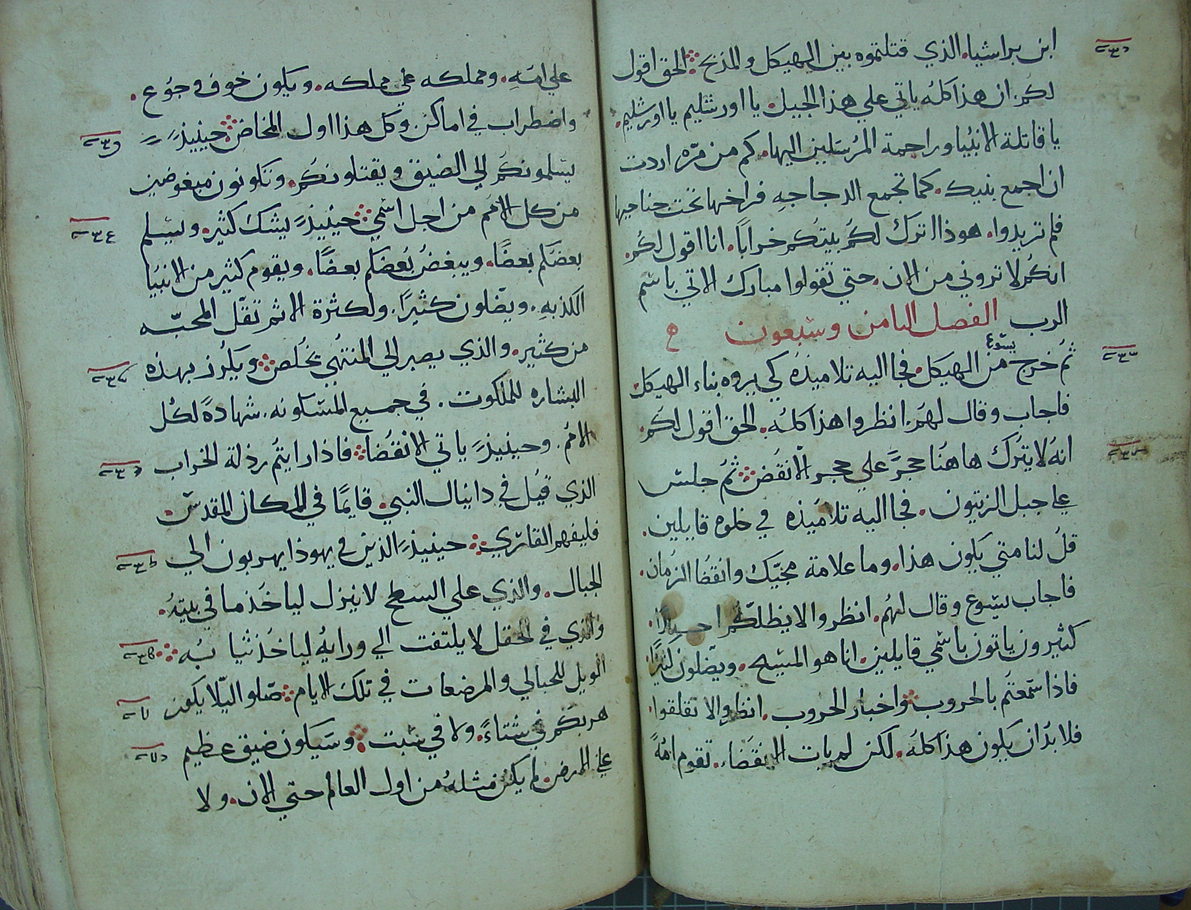 ابن براشيا. الذي قتلتموه بين الهيكل والمذبح. الحق اقول
لكم. ان هذا كله ياتي علي هذا الجيل. يا اورشليم يا اورشليم.
يا قاتلة الانبيا وراجمة المرسلين اليها. كم من مره اردت
ان اجمع بنيك. كما تجمع الدجاجه فراخها تحت جناحيها
فلم تريدوا. هوذا اترك لكم بيتكم خراباً. انا اقول لكم.
انكم لا تروني من الان. حتي تقولوا مبارك الاتي باسم
الرب الفصل الثامن وسبعون
ثم خرج يسوع من الهيكل. فجا اليه تلاميذه كي يروه بناء الهيكل.
فاجاب وقال لهم. انظروا هذا كله. الحق اقول لكم.
انه لا يترك هاهنا حجرً علي حجر الا نقض. ثم جلس
علي جبل الزيتون. فجا اليه تلاميذه في خلوه قايلين.
قل لنا متي يكون هذا. وما علامة مجيّك وانقضا الزمان.
فاجاب يسوع وقال لهم. انظروا لا يظلكم احد
كثيرون ياتون باسمي قايلين. انا هو المسيح. ويضلون كثيرًا
فاذا سمعتم بالحروب واخبار الحروب. انظروا لا تقلقوا.
فلا بد ان يكون هذا كله. لكن لم يات الانقضاء. تقوم امّة
علي امّهِ. ومملكه علي مملكه. ويكون خوف وجوُع.
واضطراب في اماكن وكل هذا اول المخاض. حينيذٍ
يسلمونكم الي الضيق ويقتلونكم. وتكونون مبغوضين
من كل الامم من اجل اسمي. حينيذٍ يشك كثير. ويسلم
بعضكم بعضًا. ويبغض بعضكم بعضًا. ويقوم كثير من الانبيا
الكذبه. ويضلون كثيرًا. ولكثرة الاثم تقل المحبّه
من كثير. والذي يصبر الي المنتهي يخلص. ويكرز بهذه
البشاره الملكوت. في جميع المسكونه. شهادةً لكل
الامم. وحينيذٍ ياتي الانقضا. فاذا رايتم رذلة الخراب
الذي قيل في دانيال النبي. قايمًا في المكان المقدس.
فليفهم القاري. حينيذٍ الذين في يهوذا يهربون الي
الجبال. والذي علي السطح لا ينزل لياخذ ما في بيته.
والذي في الحقل لا يلتفت الي ورايه لياخذ ثيابه.
الويل للحبالي والمرضعات في تلك الايام. صلوا ليلا يكون
هربكم في شتاءً. ولا في سبت. وسيكون ضيق عظيم
علي الارض. لم يكن مثله من اول العالم حتي الان. ولا